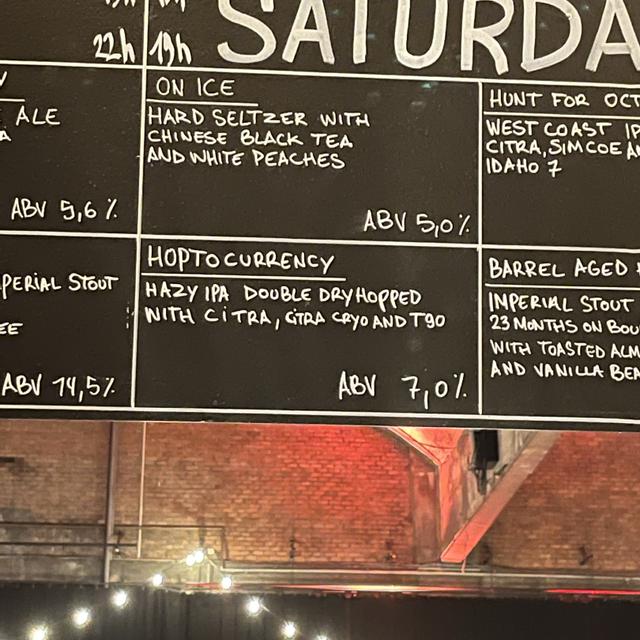 22h 19h SATURDA
ALE
ABV 5,6%
ON ICE
HARD SELTZER WITH
CHINESE BLACK TEA
AND WHITE PEACHES
ABV 5,0%
HUNT FOR OCT
WEST COAST IP
CITRA, SIMCOE AN
IDAHO 7
PERIAL STOUT
EE
ABV 14,5%
HOPTOCURRENCY
HAZY IPA DOUBLE DRY HOPPED
WITH CITRA, CITRA CRYO AND T90
ABV 7,0%
BARREL AGED
IMPERIAL STOUT
23 MONTHS ON BOU
WITH TOASTED ALM
AND VANILLA BEA